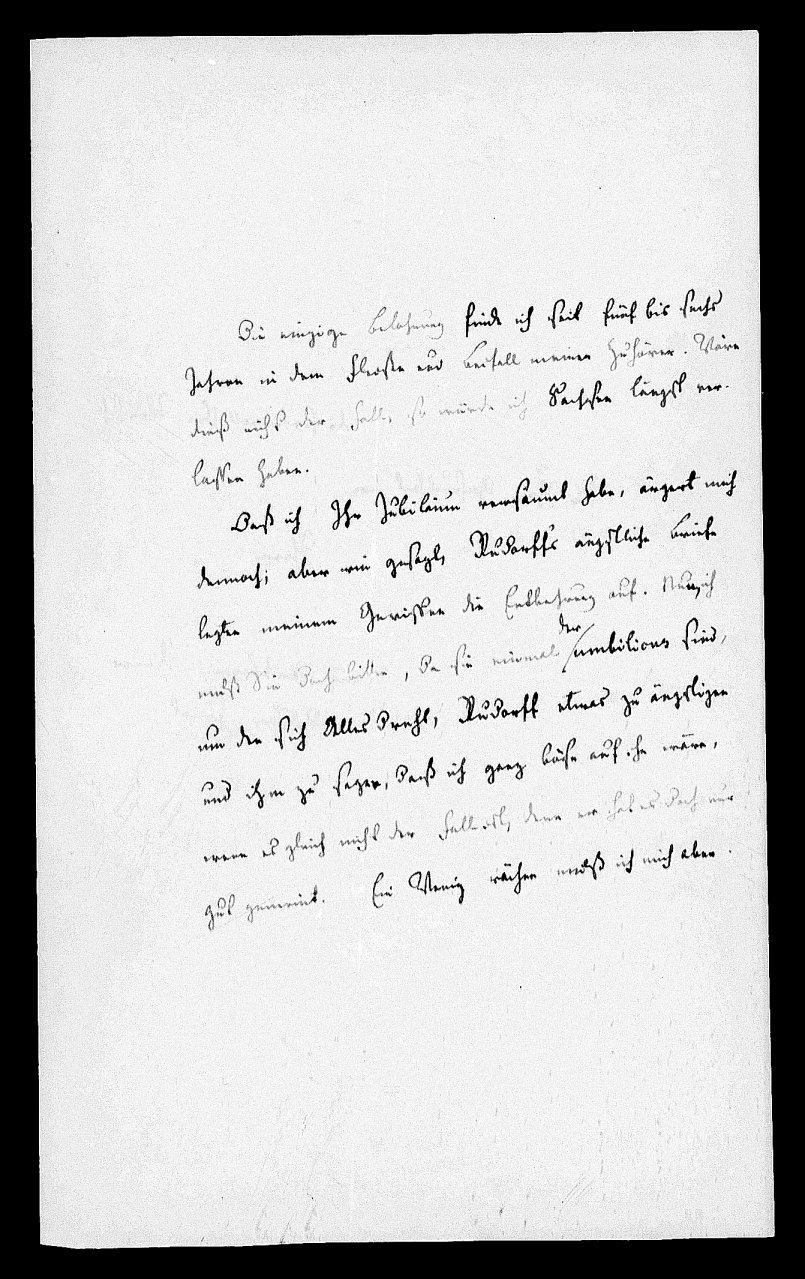 Die einzige Belohnung finde ich seit fünf bis sechs
Jahren in dem Fleiße und Beifall meiner Zuhörer. Wäre
dieß nicht der Fall, so würde ich Sachsen längst ver-
lassen haben.
Daß ich Ihr Jubiläum versäumt habe, ärgert mich
dennoch; aber wie gesagt, Rudorff's ängstliche Briefe
legten meinem Gewissen die Entbehrung auf. Nun, ich
muß Sie doch bitten, da Sie einmal der umbilicus sind,
um den sich Alles dreht, Rudorff etwas zu ängstigen
und ihm zu sagen, daß ich ganz böse auf ihn wäre,
wenn es gleich nicht der Fall ist, denn er hat es doch nur
gut gemeint. Ein Wenig rächen muß ich mich aber.